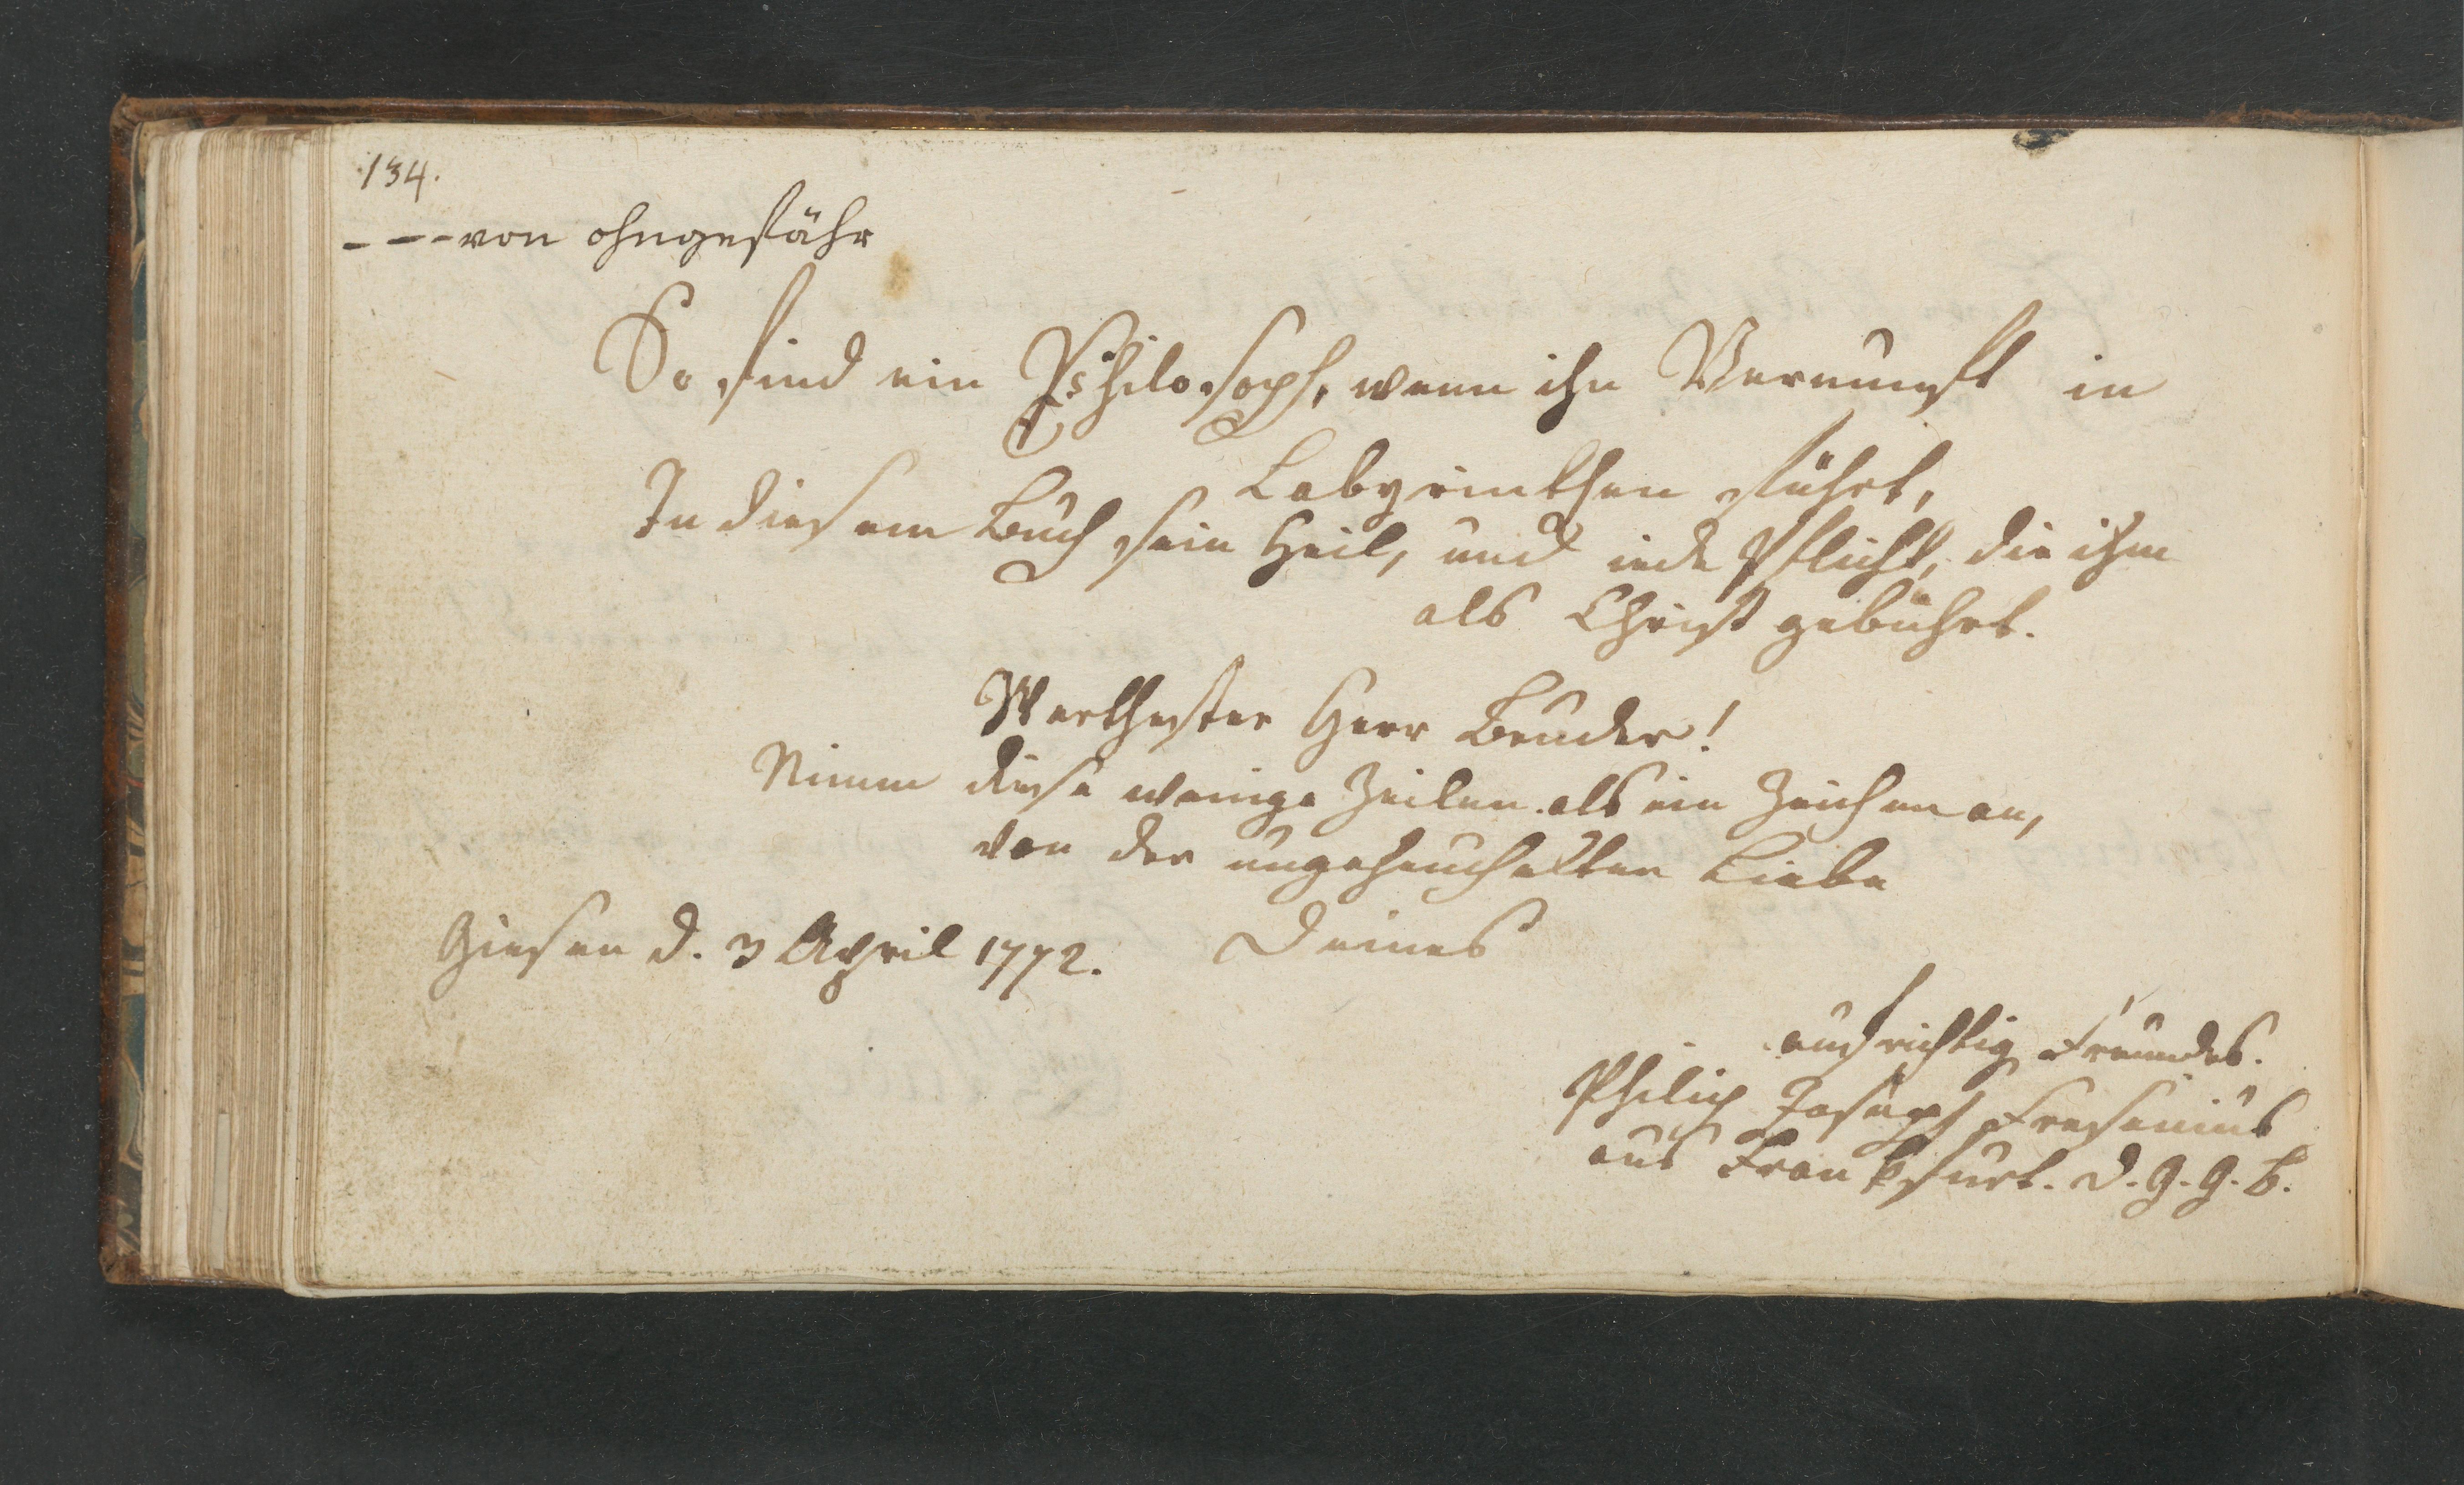 134.
---von ohngefähr
So find ein Philosoph, wenn ihn Vernunft in
Labyrinthen führt,
In diesem Buch sein Heil, und iede Pflicht, die ihm
als Christ gebührt.
Werthester Herr Bruder!
Nimm diese wenige Zeilen als ein Zeichen an,
von der ungeheuchelten Liebe
Giesen d. 3 April 1772. Deines
aufrichtig Freundes.
Philip Joseph Fresenius
aus Frankfurt. d. G. G. b.